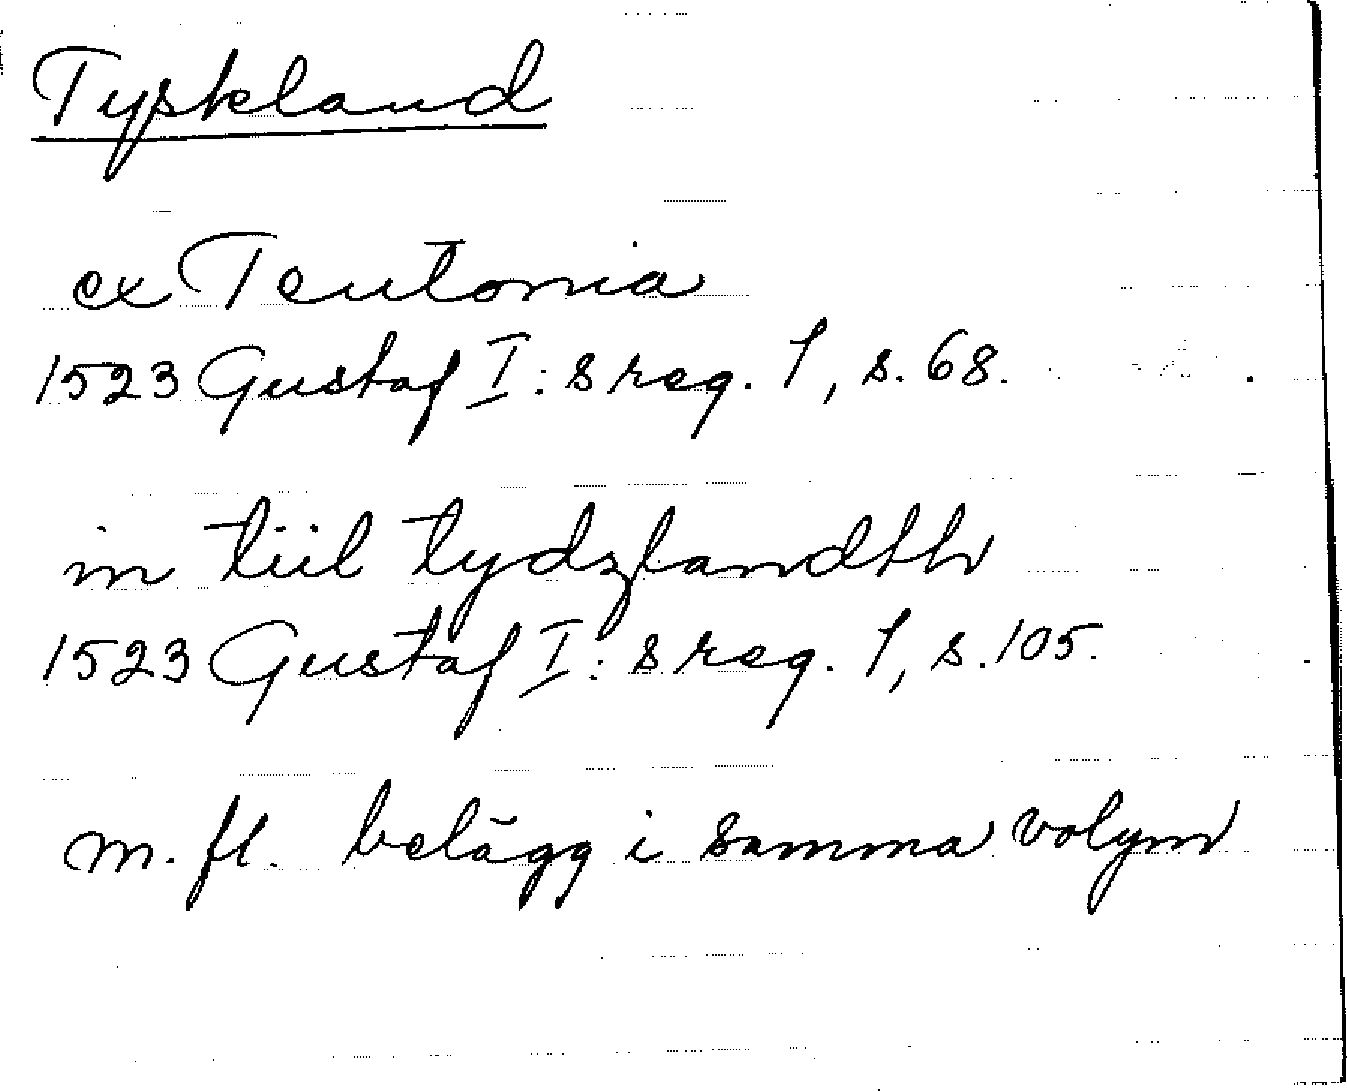 Tyskland
ex Teutonia
1523 Gustaf I:s reg. 1, s. 68.
in tiil tydzlandth
1523 Gustaf I:s reg. 1, s. 105.
m. fl. belägg i samma volym